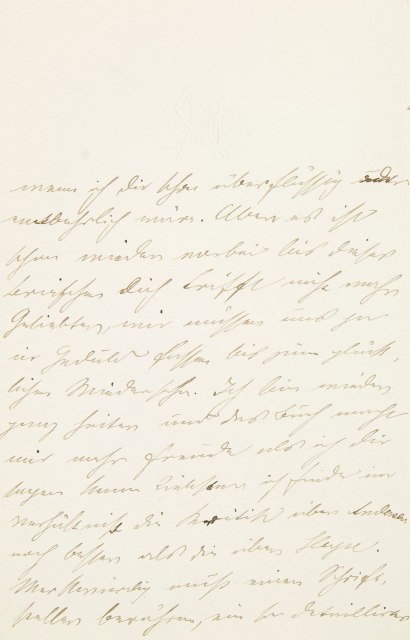 wenn ich Dir schon überflüssig oder
entbehrlich wäre. Aber es ist
schon wieder vorbei bis dieses
Briefchen Dich trifft nicht mehr
Geliebter, wir müssen uns ja
in Geduld fassen bis zum glück-
lichen Wiedersehn. Ich bin wieder
ganz heiter und das Buch macht
mir mehr Freude als ich Dir
sagen kann ich finde im
Verhältniß die Kritik über Andersen
noch besser als die über Heyse.
Merkwürdig muß einen Schrift-
steller berühren, ein so detaillirtes